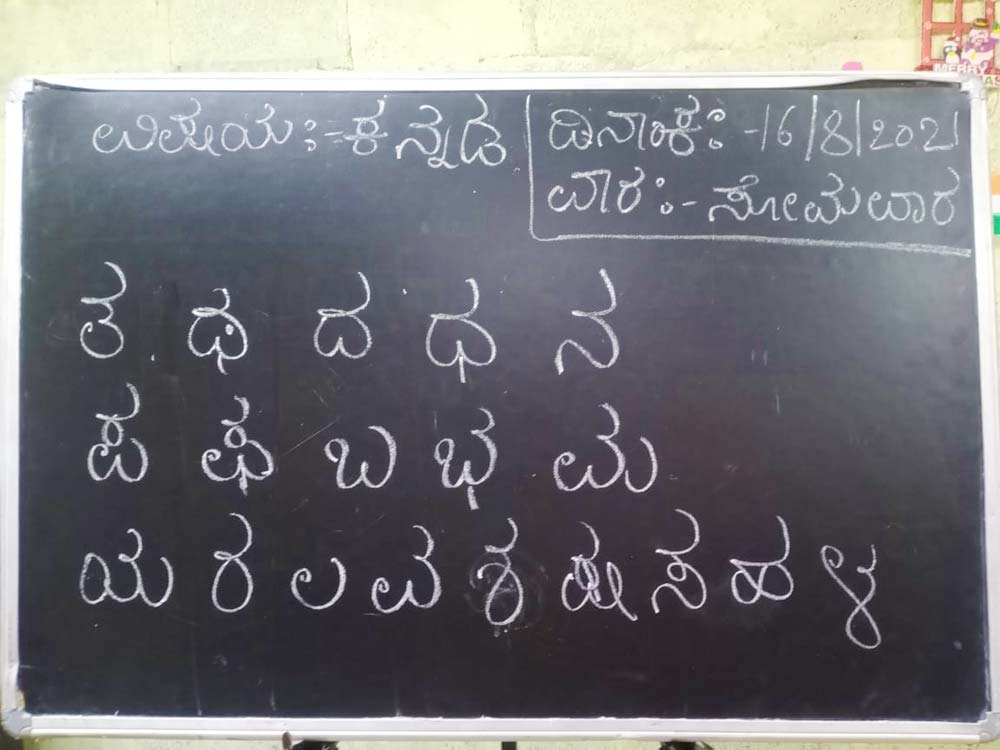 ವಿಷಯ:-ಕನ್ನಡ
ದಿನಾಂಕ:-16/8/2021
ವಾರ:-ಸೋಮವಾರ
ತ ಥ ದ ಧ ನ
ಪ ಫ ಬ ಭ ಮ
ಯ ರ ಲ ವ ಶ ಷ ಸ ಹ ಳ
MERRY